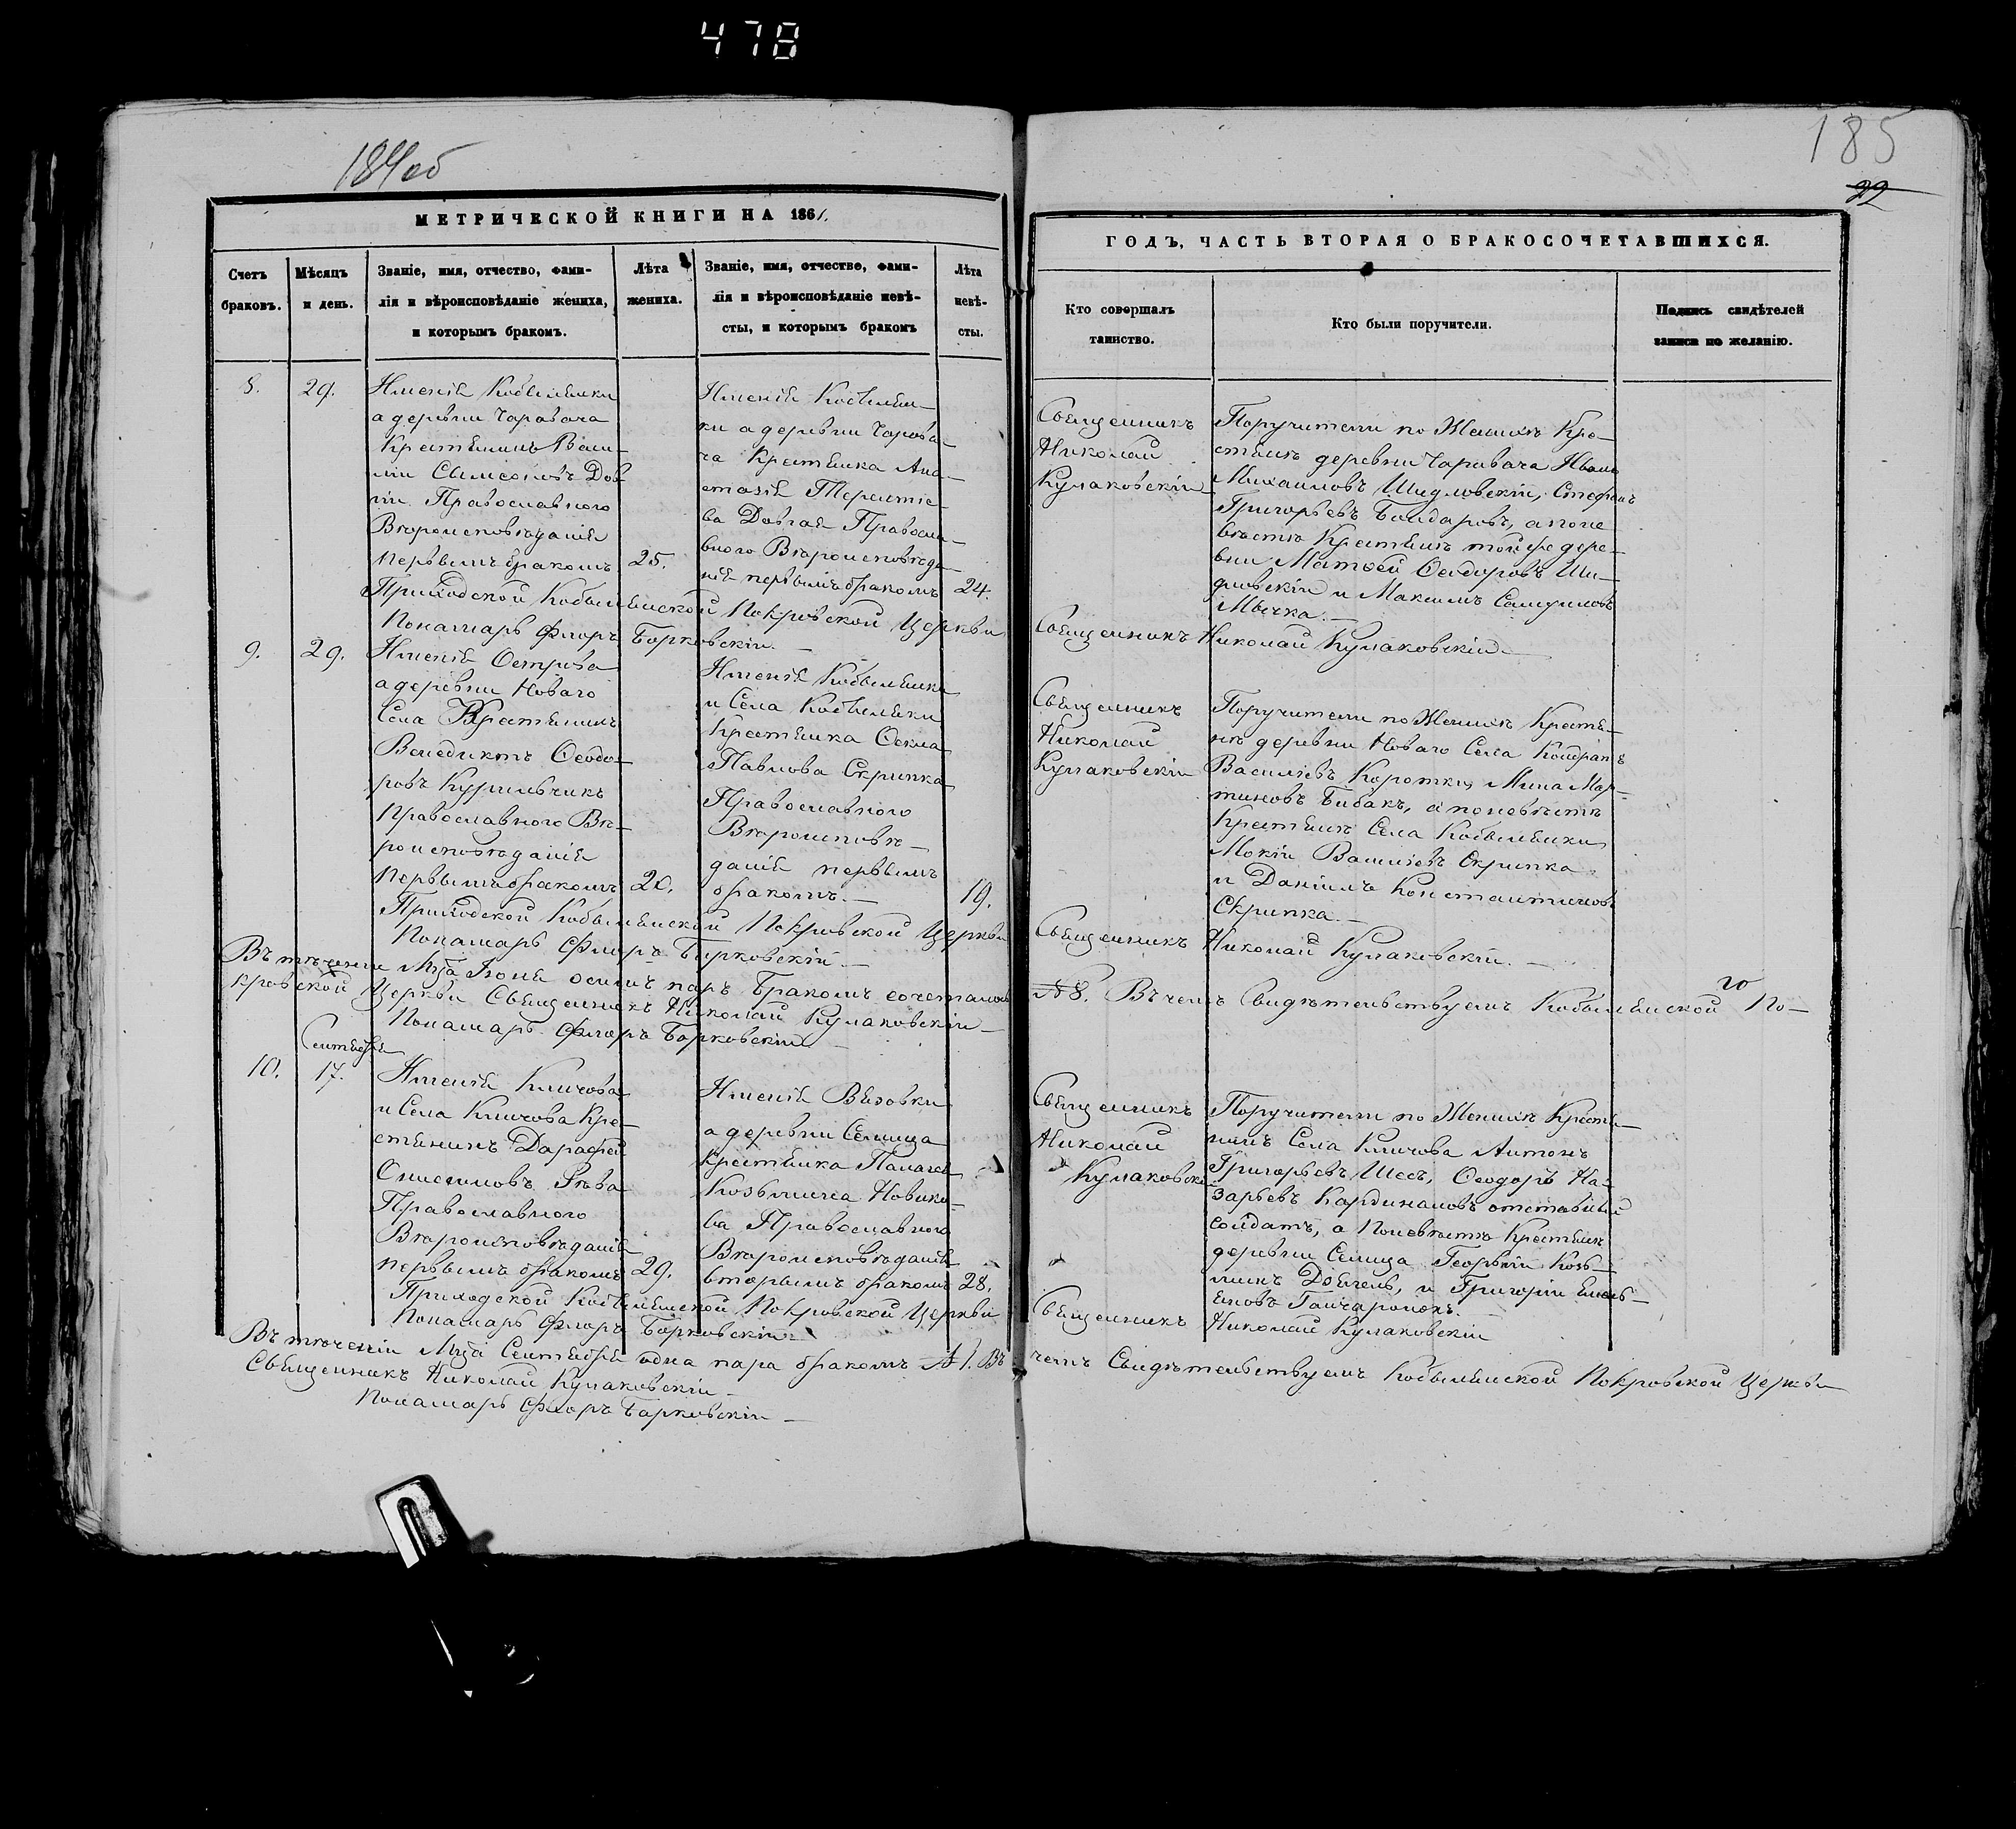 478
184об
МЕТРИЧЕСКОЙ КНИГИ НА 1861.
Счетъ
браковъ.
Мѣсяцъ
и день.
Званіе, имя, отчество, фами-
лія и вѣроисповѣданіе жениха,
и которымъ бракомъ.
Лѣта
жениха.
Званіе, имя, отчество, фами-
лія и вѣроисповѣданіе невѣ-
сты, и которымъ бракомъ
Лѣта
невѣ-
сты.
8.
29.
Имѣнія Кобыльники
а деревни Чаровача
Крестьянинъ Васи-
лій Сымеоновъ Дов
гій Православного
Вѣроисповѣданія
первымъ бракомъ
25.
Имѣнія Кобыльни-
ки а деревни Чарова-
ча Крестьянка Ана-
стазія Терентіе-
ва Довгая Правосла-
вного Вѣроисповѣда-
нія первымъ бракомъ
24.
Приходской Кобыльниской Покровской Церкви
Пономарь Флоръ Барковскій.
9.
29.
Имѣнія Острова
а деревни Новаго
Села Крестьянинъ
Венедиктъ Ѳеодо-
ровъ Курильчикъ
Православного Вѣ-
роисповѣданія
первымъ бракомъ
20.
Имѣнія Кобыльники
и Села Кобыльники
Крестьянка Ѳекла
Павлова Скрипка
Православного
Вѣроисповѣ-
данія первымъ
бракомъ.
19.
Приходской Кобыльниской Покровской Церкви
Пономарь Флоръ Барковскій
Въ теченіи Мца Іюня осьмъ паръ Бракомъ сочетались
кровской Церкви Священникъ Николай Кулаковскій
Пономарь Флоръ Барковскій
Сентября
10.
17.
Имѣнія Кличова
и Села Кличова Кре-
стьянинъ Дарофей
Онисимовъ Рѣва
Православного
Вѣроисповѣданія
первымъ бракомъ
29.
Имѣнія Вязовки
а деревни Селища
Крестьянка Палагея
Козьмина Новико-
ва Православного
Вѣроисповѣданія
вторымъ бракомъ
28.
Приходской Кобыльниской Покровской Церкви
Пономарь Флоръ Барковскій
Въ теченіи Мца Сентября одна пара бракомъ № 1. Въ
Священникъ Николай Кулаковскій
Пономарь Флоръ Барковскій
185
22
ГОДЪ, ЧАСТЬ ВТОРАЯ О БРАКОСОЧЕТАВШИХСЯ.
Кто совершалъ
таинство.
Кто были поручители.
Подпись свидѣтелей
записи по желанію.
Священникъ
Николай
Кулаковскій
Поручители по Женихѣ Кре-
стьянѣ деревни Чаравача Иванъ
Михаиловъ Шидловскій, Стефанъ
Григорьевъ Бондаровъ, а по не
вѣстѣ Крестьянѣ той же дере-
вни Матѳей Ѳеодоровъ Ши-
дловскій и Максимъ Самуиловъ
Мычка.
Священникъ Николай Кулаковскій
Священникъ
Николай
Кулаковскій
Поручители по Женихѣ Крестья-
нѣ деревни Новаго Села Кондратъ
Василіевъ Коротки, Мина Мар-
тиновъ Бибакъ, а по невѣстѣ
Крестьянѣ Села Кобыльники
Мокій Василіовъ Скрипка
и Даніилъ Константиновъ
Скрипка.
Священникъ Николай Кулаковскій.
№ 8. Въ чемъ Свидѣтельствуемъ Кобыльниской По-
Священникъ
Николай
Кулаковскій
Поручители по Женихѣ Крестья-
нинъ Села Кличова Антонъ
Григорьевъ Шесъ, Ѳеодоръ На-
зарьевъ Кардиналовъ отставный
солдатъ, а По невѣстѣ Крестьянѣ
деревни Селища Георгій Козь-
Священникъ Николай Кулаковскій
чемъ Свидѣтельствуемъ Кобыльниской Покровской Церкви